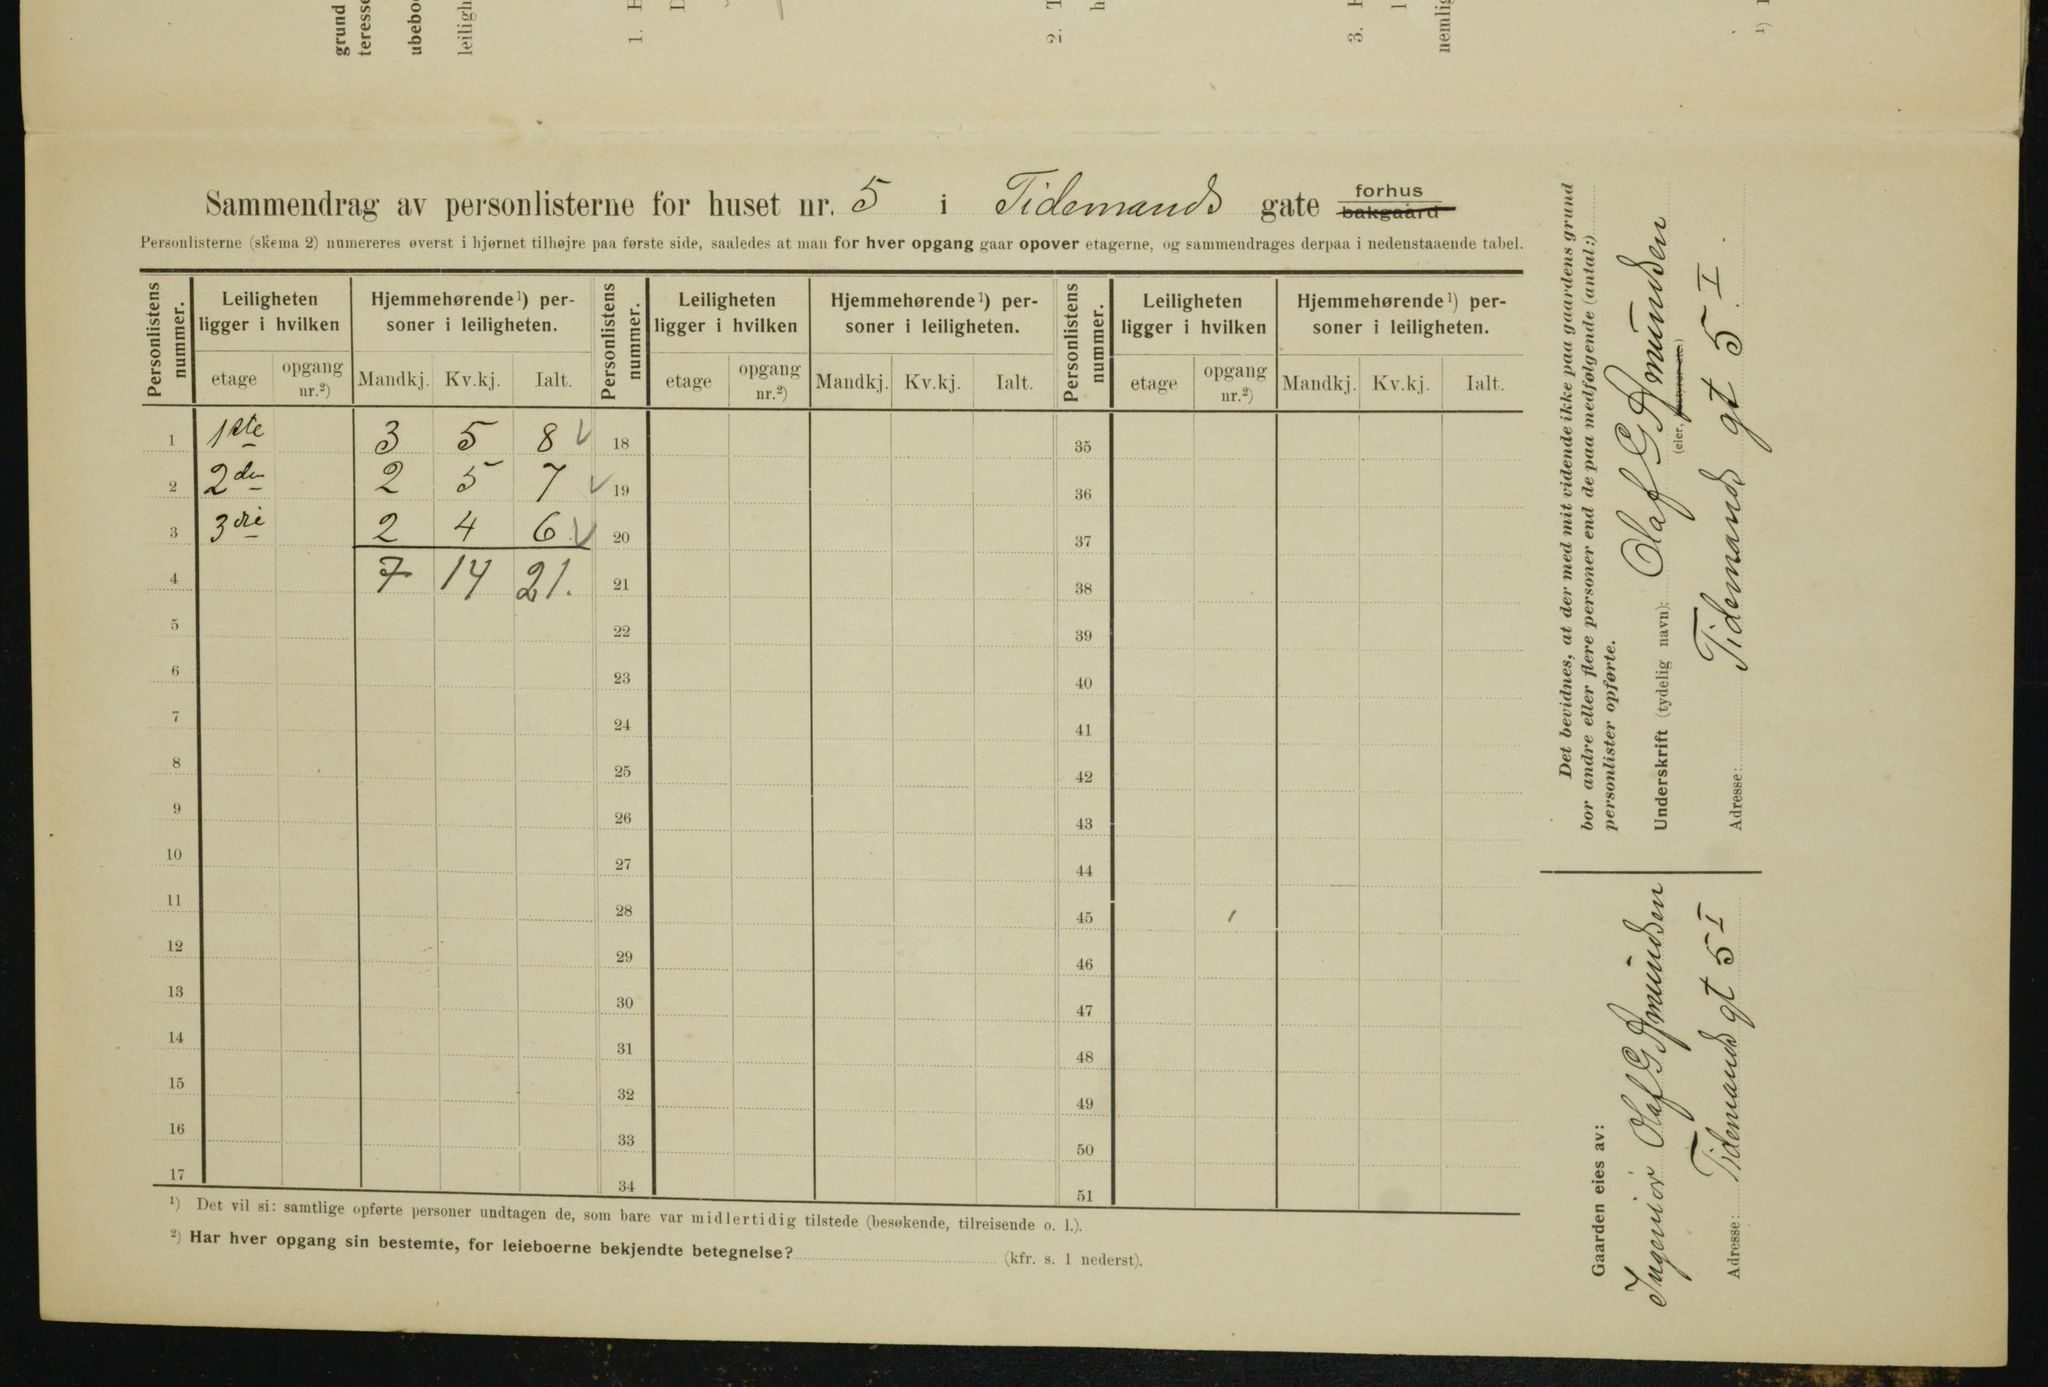 grund
teresse
ubebo
leiligh
1.
2.
3.
nemlig
1)
Sammendrag av personlisterne for huset nr. 5 i Tidemands gate forhus bakgaard
Personlisterne (skema 2) numereres øverst i hjørnet tilhøjre paa første side, saaledes at man for hver opgang gaar opover etagerne, og sammendrages derpaa i nedenstaaende tabel.
Personlistens nummer. Leiligheten ligger i hvilken Hjemmehørende 1) personer i leiligheten. Personlistens nummer. Leiligheten ligger i hvilken Hjemmehørende 1) personer i leiligheten. Personlistens nummer. Leiligheten ligger i hvilken Hjemmehørende 1) personer i leiligheten.
etage opgang nr.2) Mandkj. Kv.kj. Ialt. etage opgang nr.2) Mandkj. Kv.kj. Ialt. etage opgang nr.2) Mandkj. Kv.kj. Ialt.
1 1ste 3 5 8 18 35
2 2den 2 5 7 19 36
3 3die 2 4 6 20 37
4 7 14 21. 21 38
5 22 39
6 23 40
7 24 41
8 25 42
9 26 43
10 27 44
11 28 45
12 29 46
13 30 47
14 31 48
15 32 49
16 33 50
17 34 51
1) Det vil si: samtlige opførte personer undtagen de, som bare var midlertidig tilstede (besøkende, tilreisende o. l.).
2) Har hver opgang sin bestemte, for leieboerne bekjendte betegnelse? (kfr. s. 1 nederst).
Det bevidnes, at der med mit vidende ikke paa gaardens grund
bor andre eller flere personer end de paa medfølgende (antal:)
personlister opførte.
Underskrift (tydelig navn): Olaf G Amundsen
(eier,
Adresse: Tidemands gt 5.I.
Gaarden eies av:
Ingeniør Olaf G Amundsen
Adresse: Tidemands gt 5 I